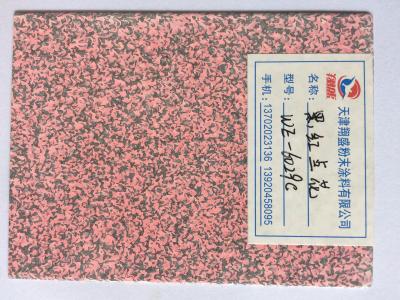 翔盛
天津翔盛粉末涂料有限公司
名称:黑红点花
型号:WZ-6029C
手机:13702023136 13920458095